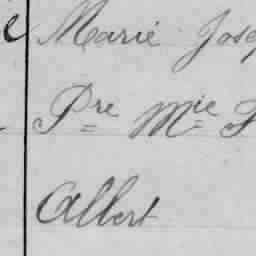 Marie Jose
Pre Mie
Albert